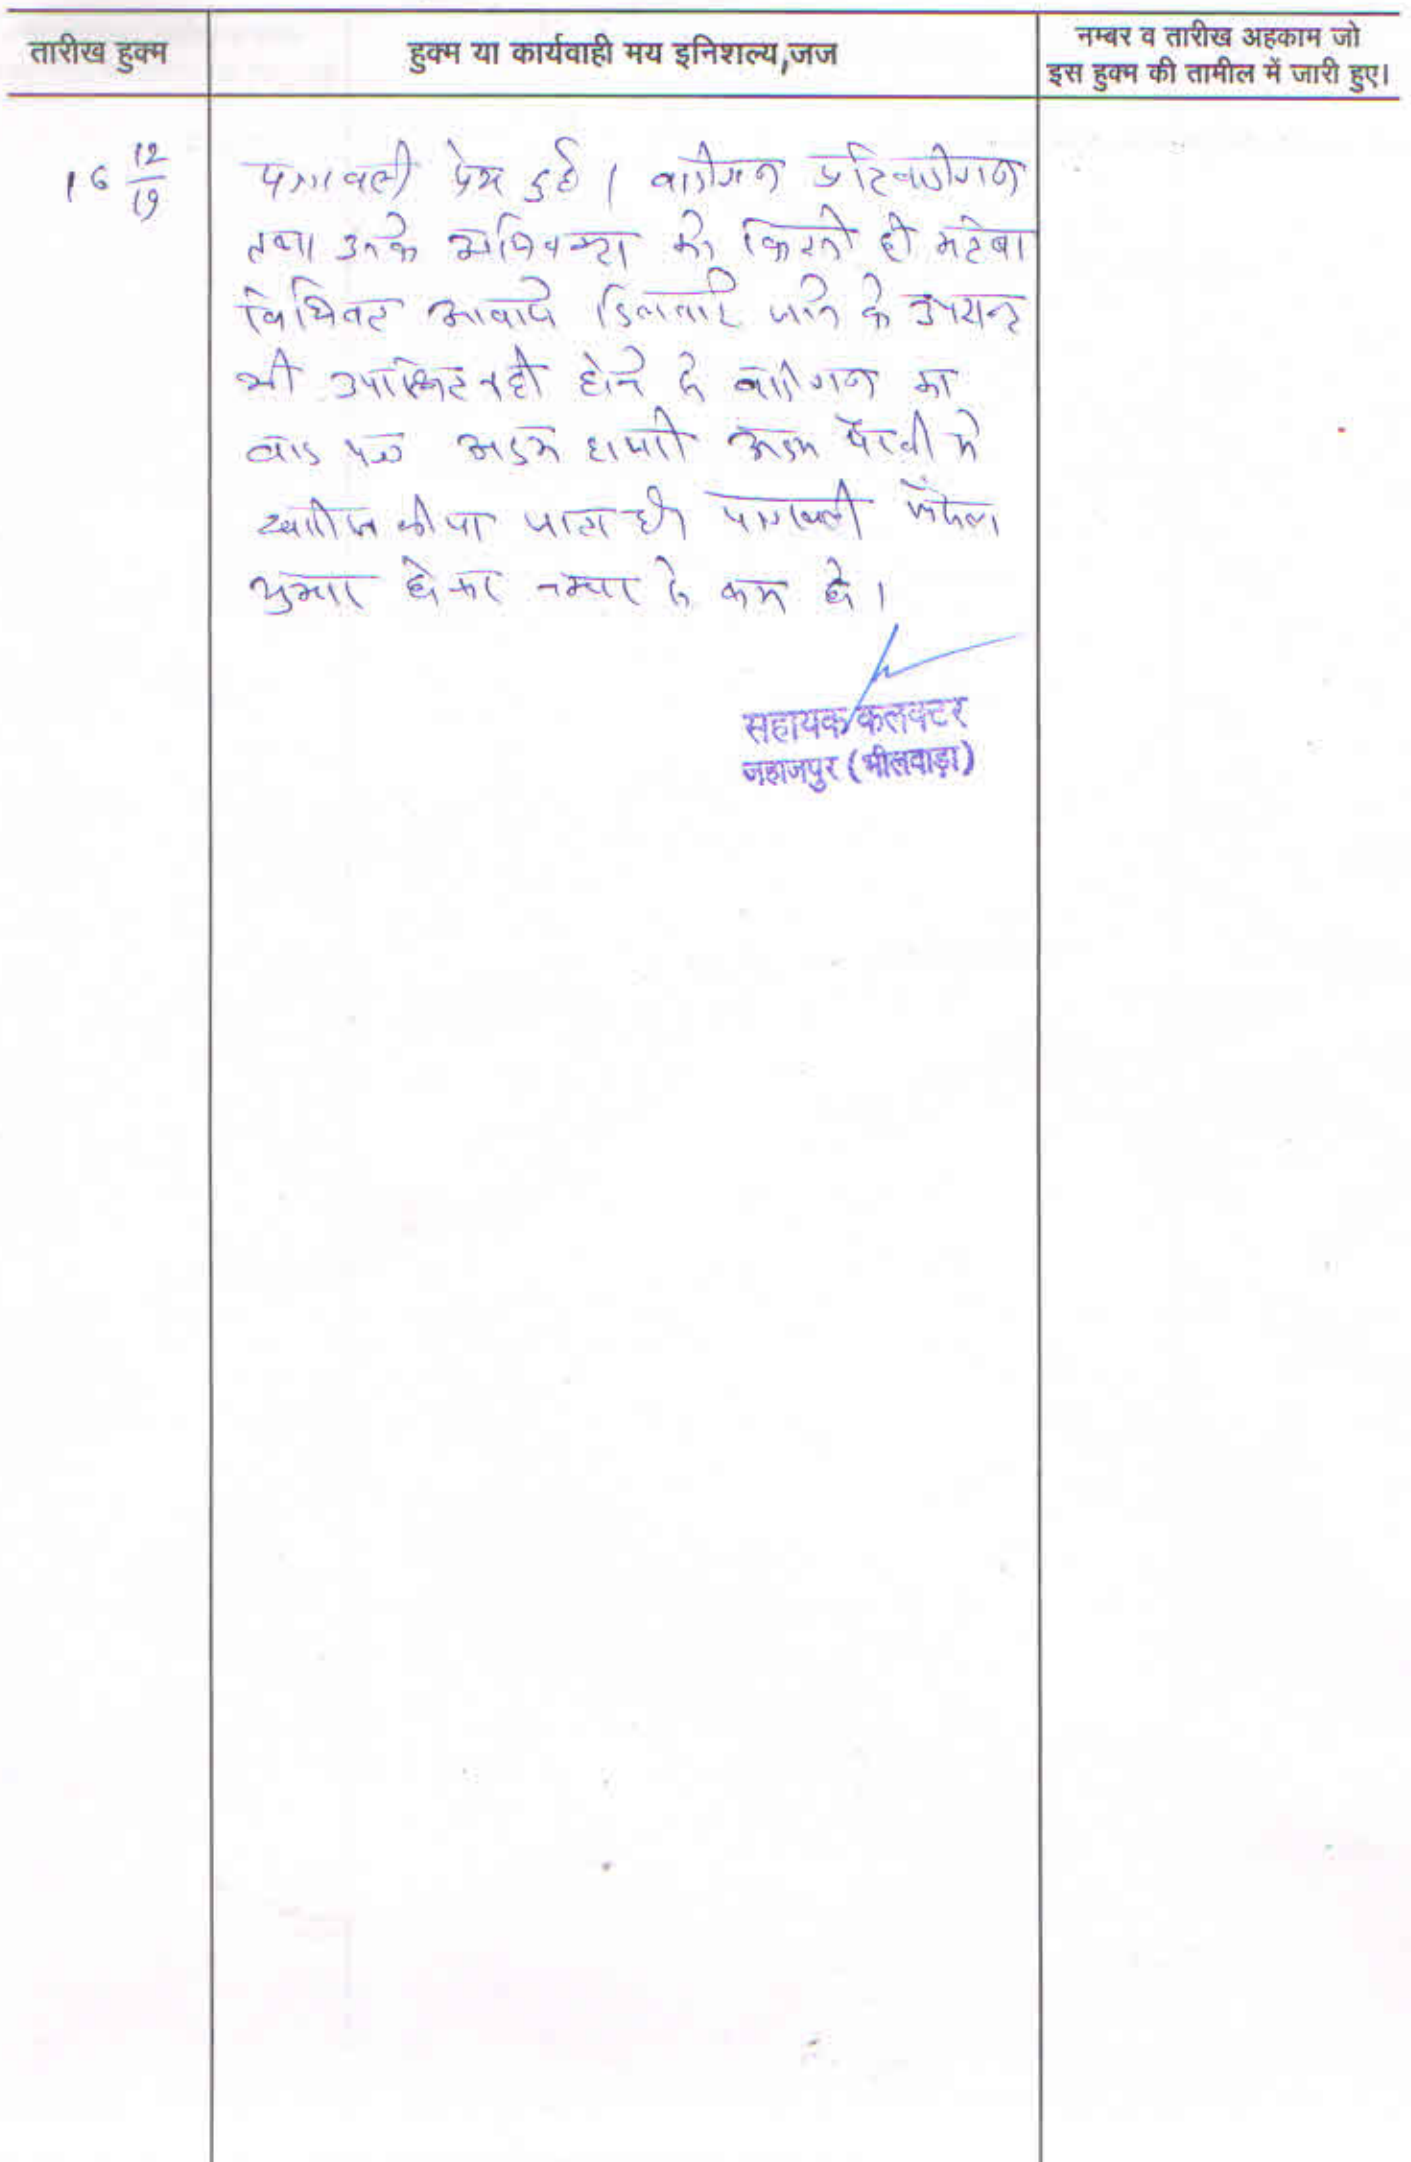 तारीख हुक्म
हुक्म या कार्यवाही मय इनिशल्य,जज
नम्बर व तारीख अहकाम जो
इस हुक्म की तामील में जारी हुए।
16 12/19
पत्रावली पेश हुई । वादीगन प्रतिवादीगन
तथा उनके अधिवक्ता को कितनी ही मर्तबा
विधिवत आवाजे दिलवाये जाने के उपरान्त
भी उपस्थित नही होने से वादीगन का
वाद पत्र अदम हाजरी अदम पैरवी मे
खारीज कीया जाता है। पत्रावली फैसल
शुमार होकर नम्बर से कम हो ।
सहायक कलक्टर
जहाजपुर (भीलवाड़ा)